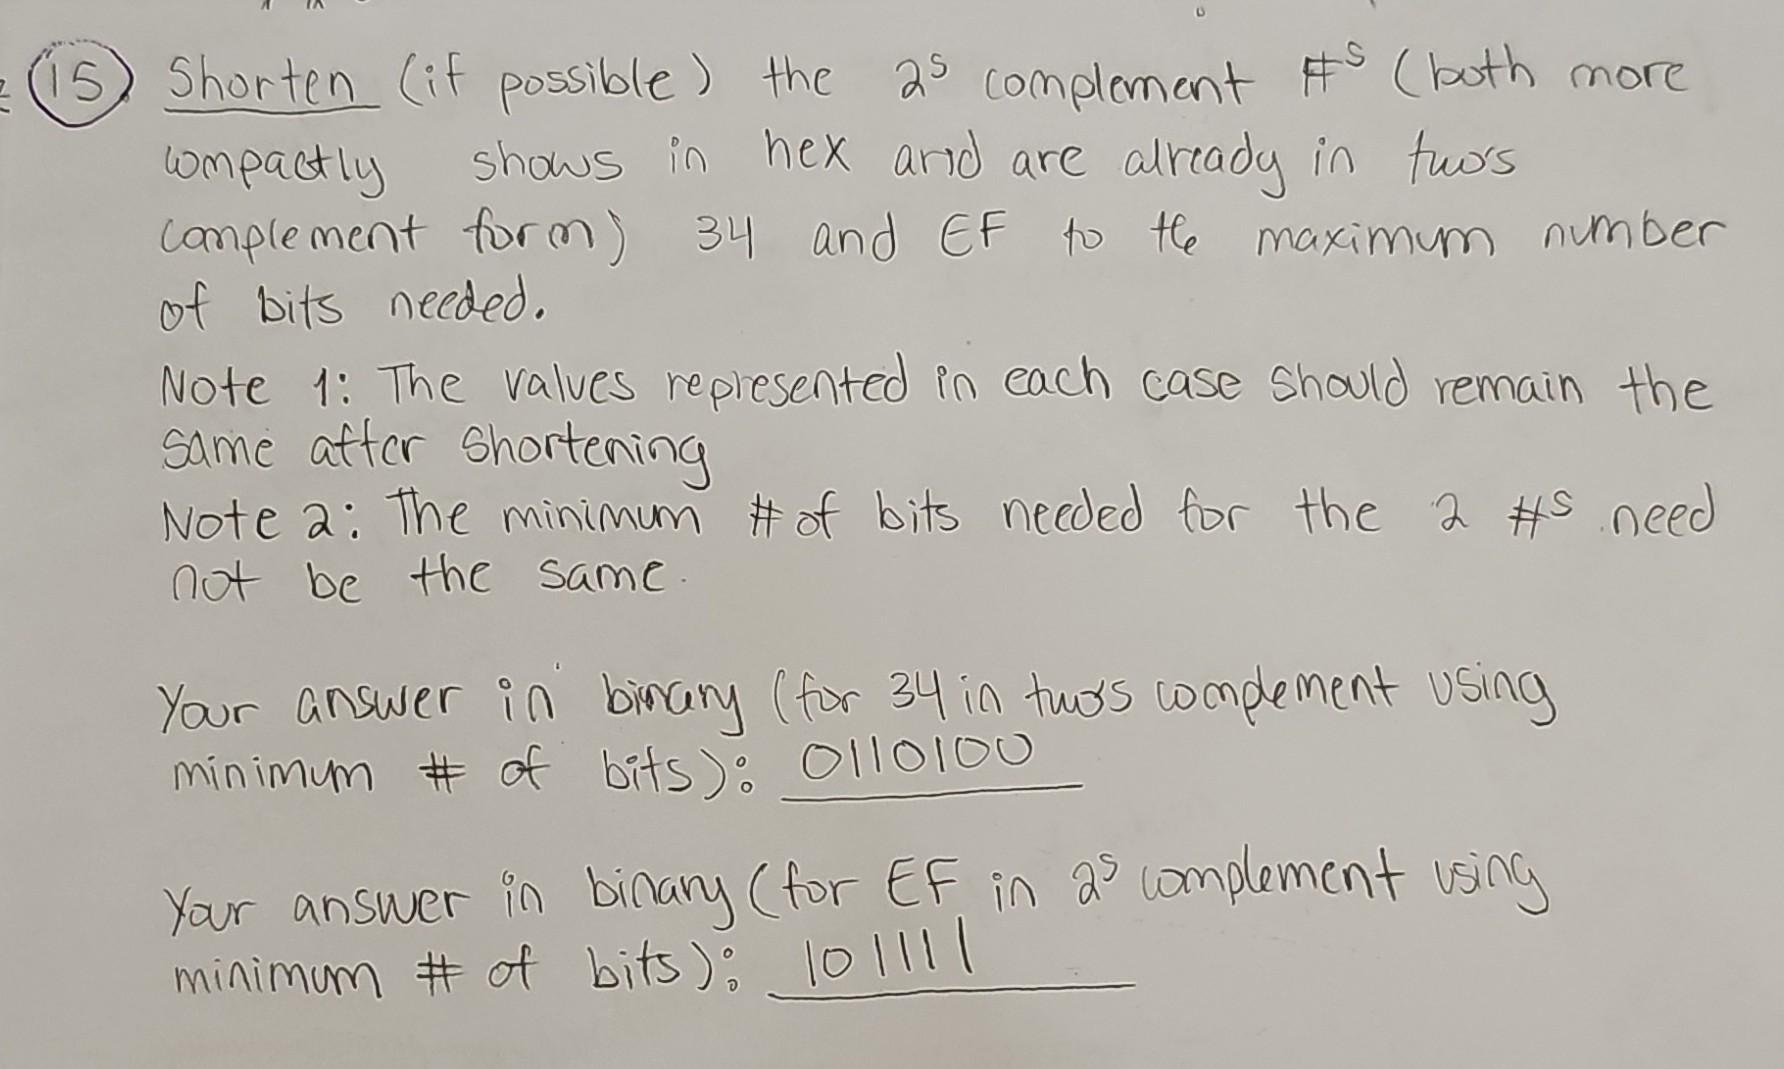 15 Shorten (if possible) the 2s complement #s (both more
compactly shows in hex and are already in two's
complement form) 34 and EF to the maximum number
of bits needed.
Note 1: The values represented in each case should remain the
same after shortening
Note 2: The minimum # of bits needed for the 2 #s need
not be the same.
Your answer in binary (for 34 in two's complement using
minimum # of bits): 0110100
Your answer in binary (for EF in 2s complement using
minimum # of bits): 101111